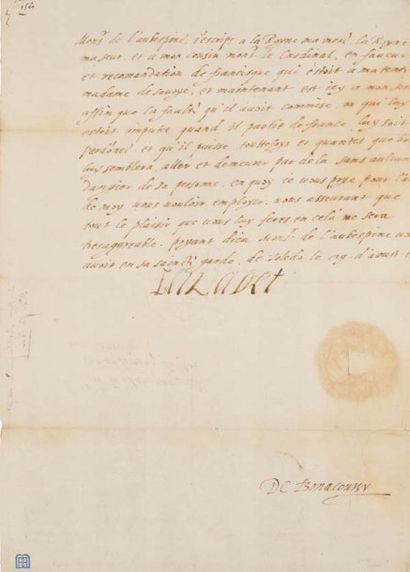 156
Mons.r de l'aubespine, i'escript a la Royne ma mere, la Royne
ma seur, et a mon cousin mons.r le Cardinal, en faueur
et recomandation de francisque qui estoit a ma tante
madame de sauoye, et maintenant est icy a mon
affin que la faulte qu'il auoit commise, ou qui luy
estoit impute quand il partie de france luy soit
perdonee, et qu'il puisse touttefoys et quantes que bon
luy semblera, aller et demeurer par de la sans aulcun
dangier de sa persone, en quoy ie vous prye pour l'
de moy vous vouloir employer, vous asseurant que
tout le plaisir que vous luy feres en cela me sera
tresagreable. pryant dieu Mons.r de l'aubespine vous
auoir en sa saincte garde. de Toledo le 29 d'aoust
Elizabet
De Bonacoursy